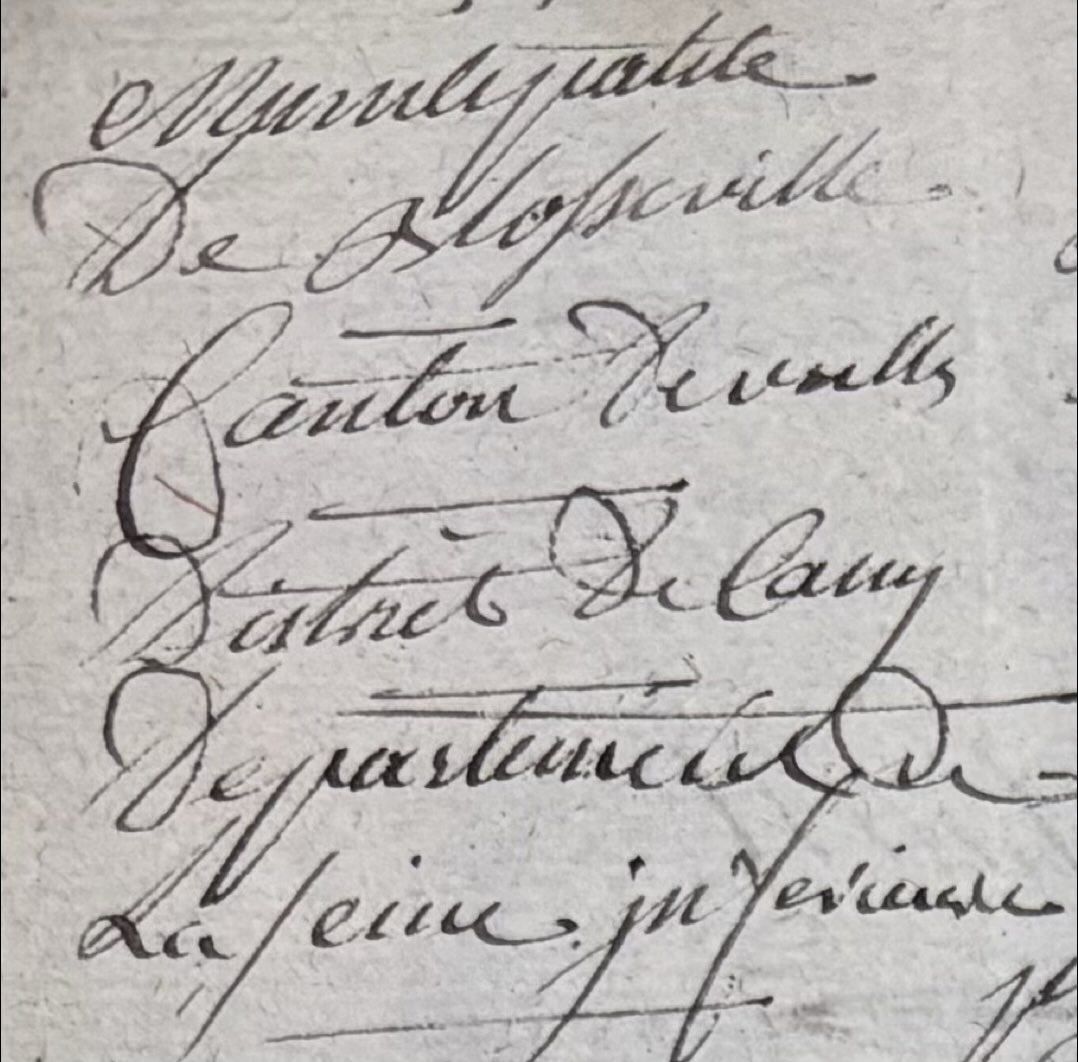 Municipalité
De Blosseville
Canton De veulles
District De Cany
Departement De
La Seine inferieure